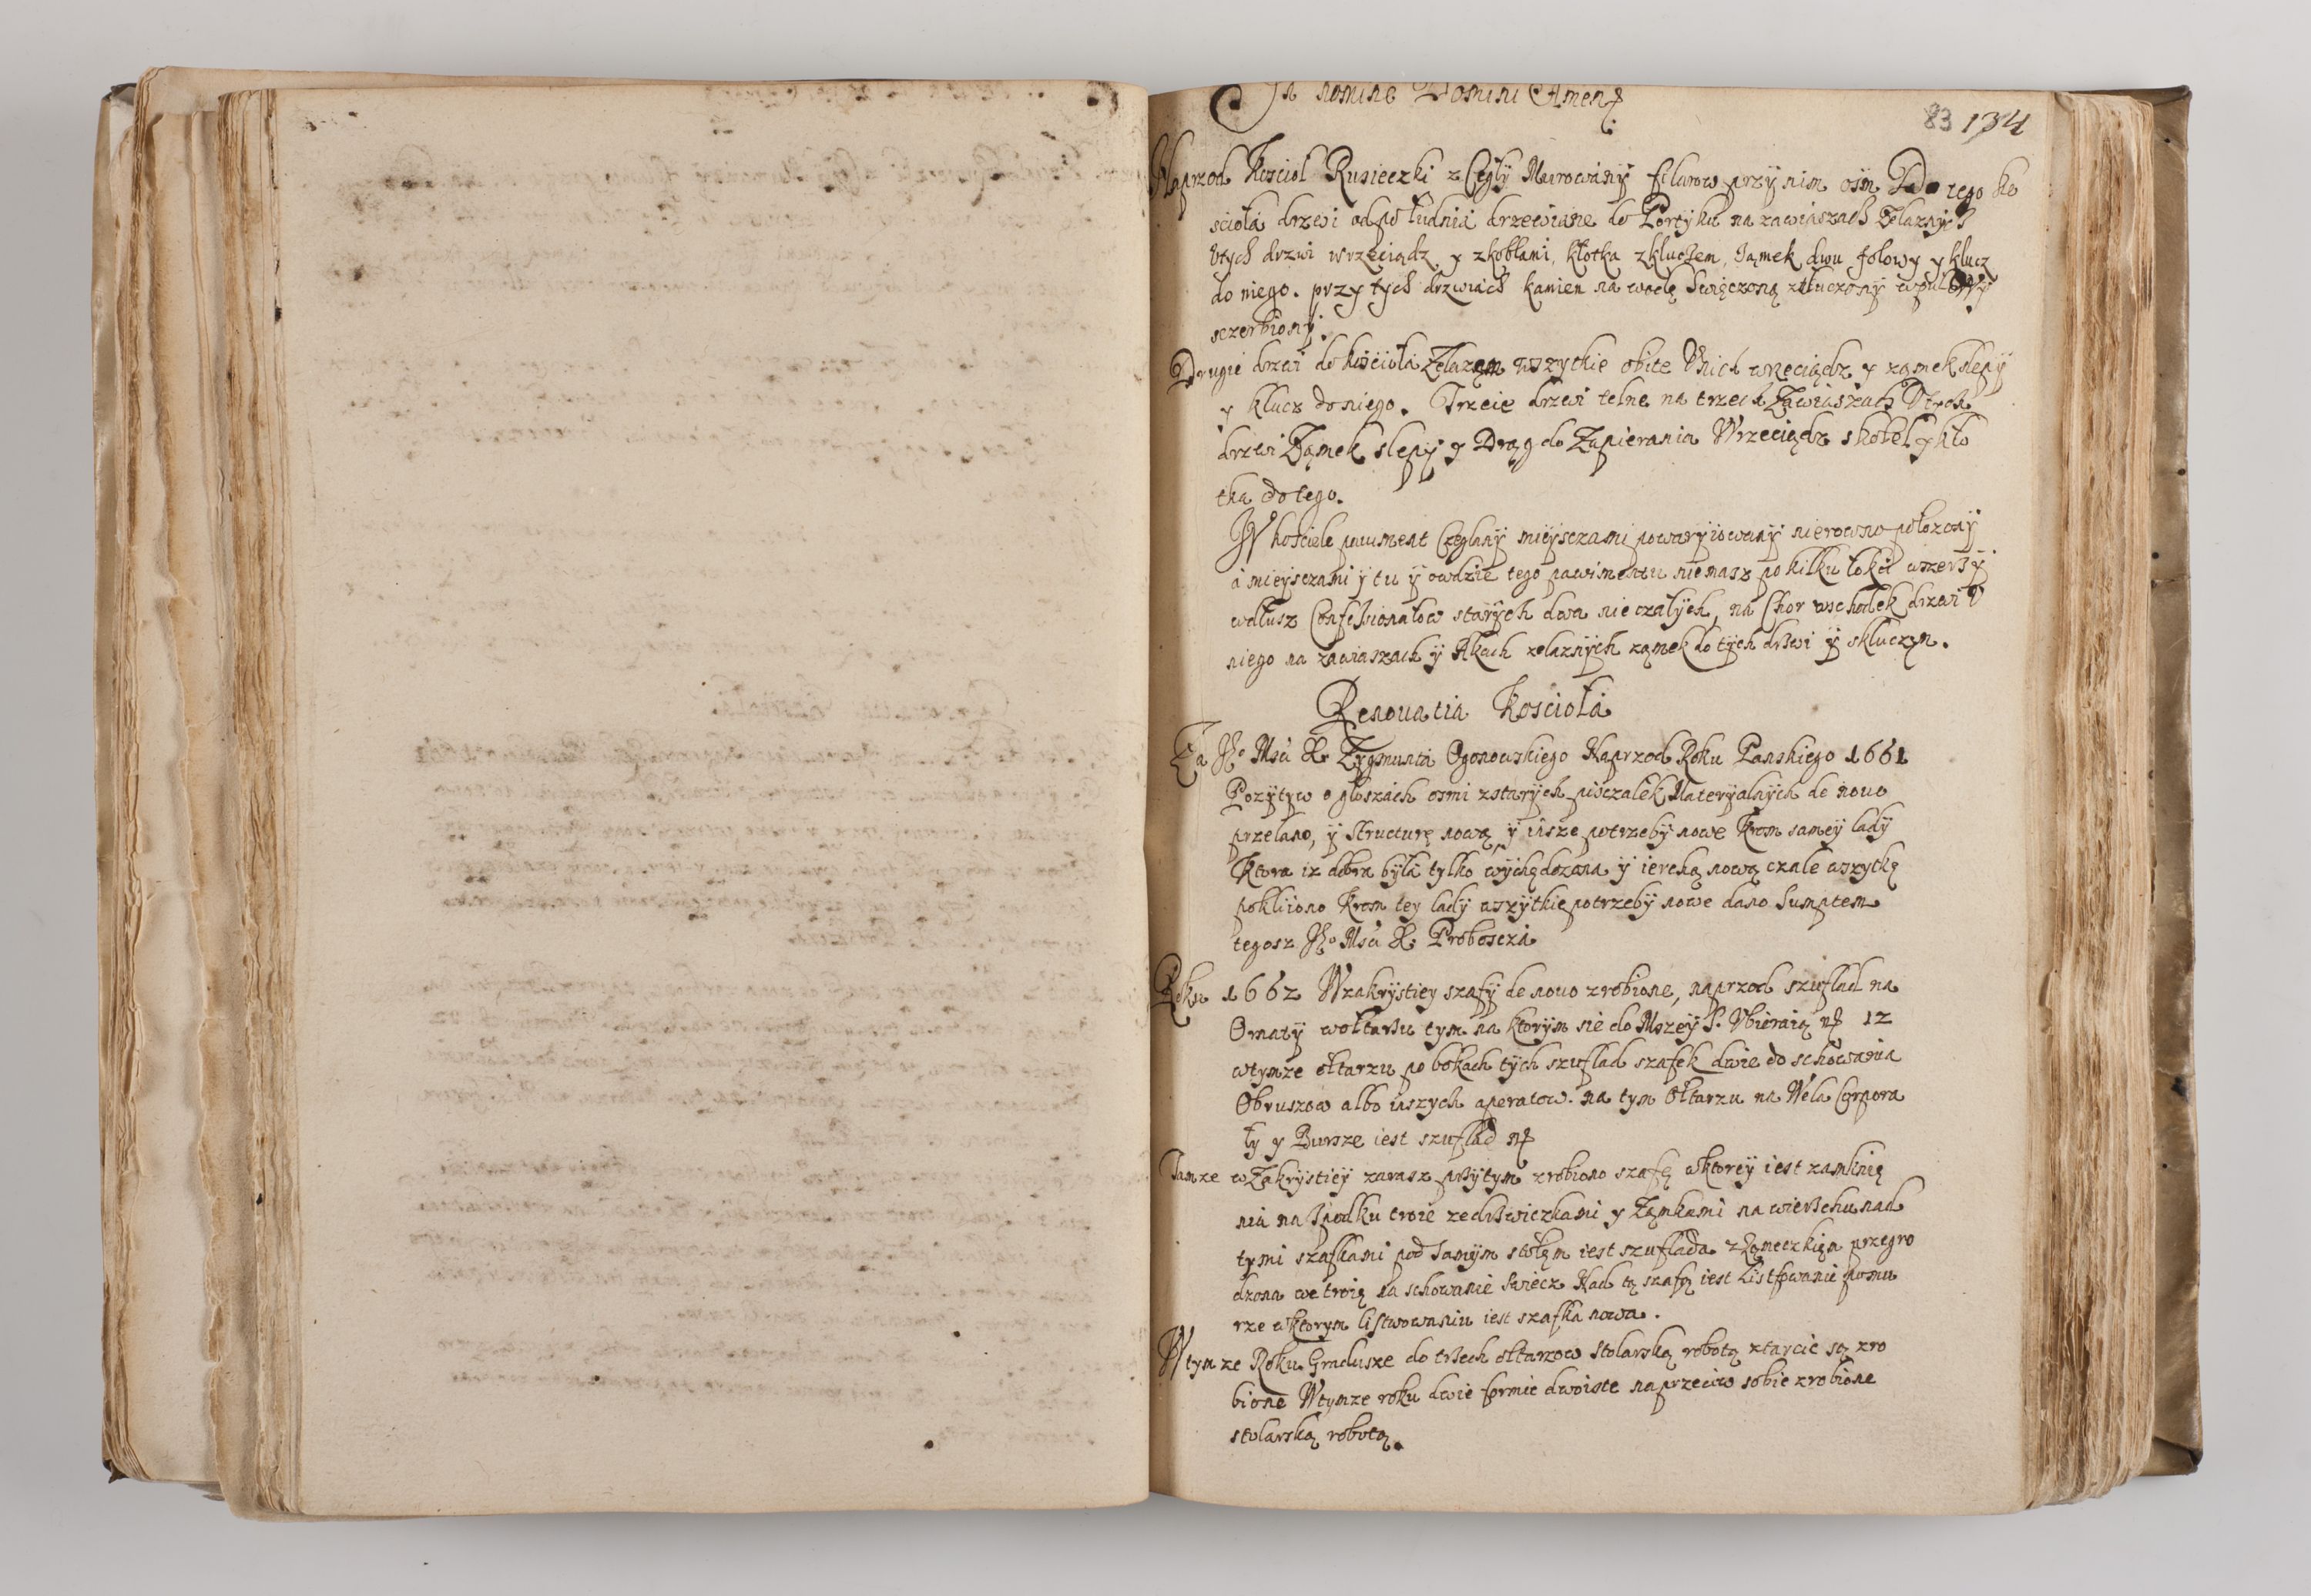 In nomine Domini Amen
83 134
Naprzod Kosciol Rusieczki z Cegly Murowany filarow przy nim osm Do tego ko
sciola drzwi od poludnia drzewiane do Portyku na zawiaszach Zelaznych
Utych drzwi wrzeciądz y zkoblami, klotka zkluczem, Zamek dwu folowy y klucz
do niego. przy tych drzwiach kamien na wodę Swięczoną ztluczony wpul
sczerbiony.
Drugie drzwi do kosciola Zelazem wszytkie obite Unich wrzeciądz y zamek slepy
y klucz do niego. Trzcie drzwi telne na trzech Zawiaszach Utych
drzwi Zamek slepy y Drąg do Zapierania Wrzeciądz skobel y klo
tka do tego.
W kosciele pauiment Czeglany mieysczami nierowno polozony
a mieysczami y tu y owdzie tego pawimentu niemasz po kilku lokci wszersz y
wdlusz Confessionalow starych dwa nieczalych, na Chor wschodek drzwi U
niego na zawiaszach y Akach zelaznych zamek do tych drzwi y skluczem.
Renouatia Kosciola
Za Jho Msci X. Zygmunta Ogonowskiego Naprzod Roku Panskiego 1661
Pozytyw o gloszach osmi zstarych pisczalek Materyalnych de nouo
przelano, y Structurę nową y insze potrzeby nowe Krom samey lady
Ktora iz dobra byla tylko wychędozona y ierchą nową czale wszytkę
pokliiono Krom tey lady wszytkie potrzeby nowe dano Sumptem
tegosz Jho Msci X. Probosczá
Roku 1662 Wzakrystiey szafy de nouo zrobione, naprzod szuflad na
Ornaty woltarzu tym na ktorym sie do Mszey S. Ubieraią nro 12
wtymze oltarzu po bokach tych szuflad szafek dwie do schowania
Obruszow albo inszych aperatow. na tym Oltarzu na Wela Corpora
ly y Bursze iest szuflad nro
Tamze w Zakrystiey zarasz przytym zrobiono szafę wktorey iest zamknię
nia na Spodku troie zedrzwiczkami y Zamkami na wierzchu nad
tymi szafkami pod Samym stolem iest szuflada zZameczkiem przegro
dzona we troię na schowanie Swiecz Nad tą szafą iest Listfowanie pomu
rze wktorym listwowaniu iest szafka nowa.
Wtymze Roku Gradusze do trzech oltarzow Stolarską robotą ztarcic są zro
bione Wtymze roku dwie formie dwoiste naprzeciw sobie zrobione
stolarską robotą.